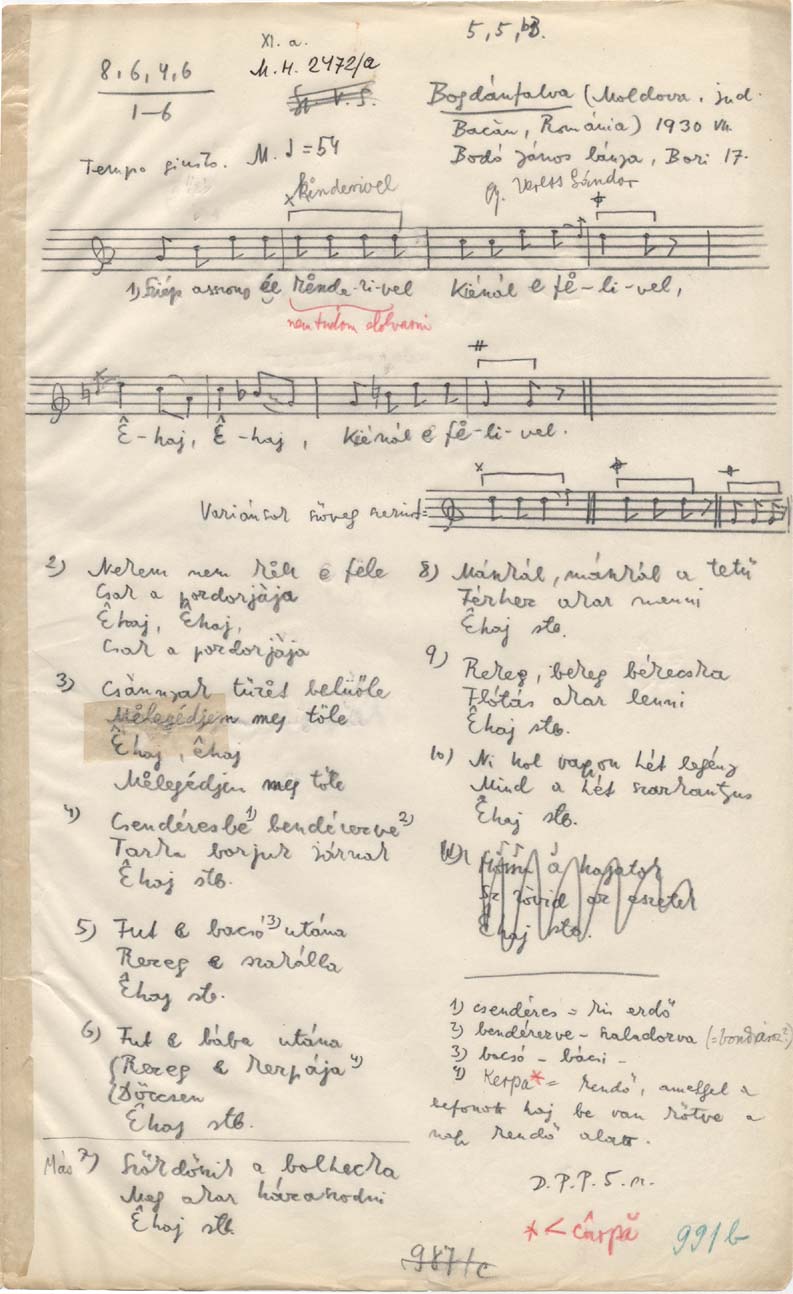 5, 5, b3.
XI. a.
8, 6, 4, 6
1–6
M. H. 2472/a
Bogdánfalva (Moldova, jud.
Bacău, Románia) 1930 VII.
Bodó János lánya, Bori 17.
Tempo giusto. M. ♩=54
gy. Veress Sándor
x kěnderivel
1) Szép asszony ée kěnde-ri-vel Kiénál e fě-li-vel,
nem tudom elolvasni
Ê-haj, Ê-haj, Kiénál e fě-li-vel.
Variánsok szöveg szerint=
2) Nekem nem kěll e féle
Csak a pordorjája
Êhaj, Êhaj,
Csak a pordorjája
3) Csánnyak türět belüőle
Mělegédjem meg tőle
Êhaj, êhaj
Mělegédjen meg tőle
4) Csendéresbe 1) bendérezve 2)
Tarka borjuk járnak
Êhaj stb.
5) Fut e bacsó 3) utána
Rezeg e szakálla
Êhaj stb.
6) Fut e bába utána
Rezeg e kerpája 4)
Döccsen
Êhaj stb.
Más 7) Szökdösik a bolhecka
Meg akar házasodni
Êhaj stb.
8) Mászkál, mászkál a tetü
Férhez akar menni
Êhaj stb.
9) Rezeg, bereg bérecska
Flótás akar lenni
Êhaj stb.
10) Ni hol vagyon hét legény
Mind a hét szarkantyus
Êhaj stb.
11) a hajatok
Sz rövid az eszetek
Êhaj stb.
1) csendéres = kis erdő
2) bendérezve – szaladozva
3) bacsó – bácsi –
4) Kerpa* = kendő, amellyel a
befonott haj be van kötve a
nagy kendő alatt.
D. P. P. S. n.
* < cârpă
991b
987/c